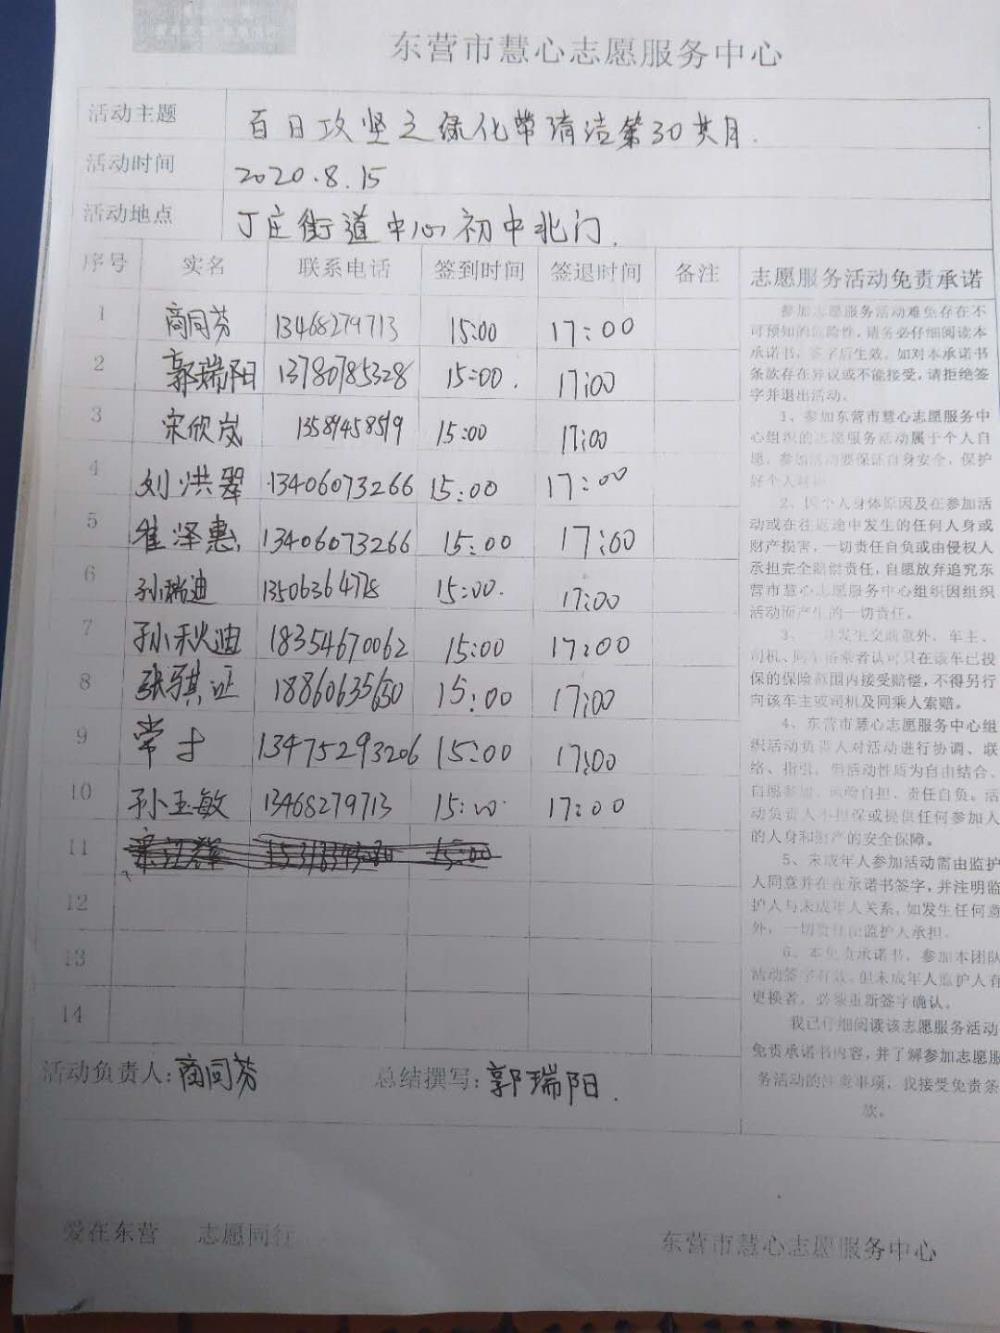 东营市慧心志愿服务中心
活动主题 百日攻坚之绿化带清洁第30类月.
活动时间 2020.8.15
活动地点 丁庄街道中心初中北门.
序号 实名 联系电话 签到时间 签退时间 备注
1 商同芬 13468279713 15:00 17:00
2 郭瑞阳 13780785328 15:00. 17:00
3 宋欣岚 13589458519 15:00 17:00
4 刘洪翠 13406073266 15:00 17:00
5 崔泽惠 13406073266 15:00 17:00
6 孙瑞迪 15:00. 17:00
7 孙秋迪 18354670062 15:00 17:00
8 张骐证 18860635650 15:00 17:00
9 常士 13475293206 15:00 17:00
10 孙玉敏 13468279713 15:00 17:00
11 15:00
12
13
14
活动负责人:商同芬 总结撰写:郭瑞阳.
志愿服务活动免责承诺
参加志愿服务活动难免存在不
可预知的危险性,请务必仔细阅读本
承诺书,签字后生效。如对本承诺书
条款存在异议或不能接受,请拒绝签
字并退出活动。
1、参加东营市慧心志愿服务中
心组织的志愿服务活动属于个人自
愿,参加活动要保证自身安全,保护
好个人财物
2、因个人身体原因及在参加活
动或在往返途中发生的任何人身或
财产损害,一切责任自负或由侵权人
承担完全赔偿责任,自愿放弃追究东
营市慧心志愿服务中心组织因组织
活动而产生的一切责任。
3、一旦发生交通意外,车主、
司机、同车搭乘者认可只在该车已投
保的保险范围内接受赔偿,不得另行
向该车主或司机及同乘人索赔。
4、东营市慧心志愿服务中心组
织活动负责人对活动进行协调、联
络、指引,但活动性质为自由结合、
自愿参加、风险自担、责任自负。活
动负责人不担保或提供任何参加人
的人身和财产的安全保障。
5、未成年人参加活动需由监护
人同意并在在承诺书签字,并注明监
护人与未成年人关系,如发生任何意
外,一切责任由监护人承担。
6、本免责承诺书,参加本团队
活动签字有效,但未成年人监护人有
更换者,必须重新签字确认。
我已仔细阅读该志愿服务活动
免责承诺书内容,并了解参加志愿服
务活动的注意事项,我接受免责条
款。
爱在东营 志愿同行
东营市慧心志愿服务中心